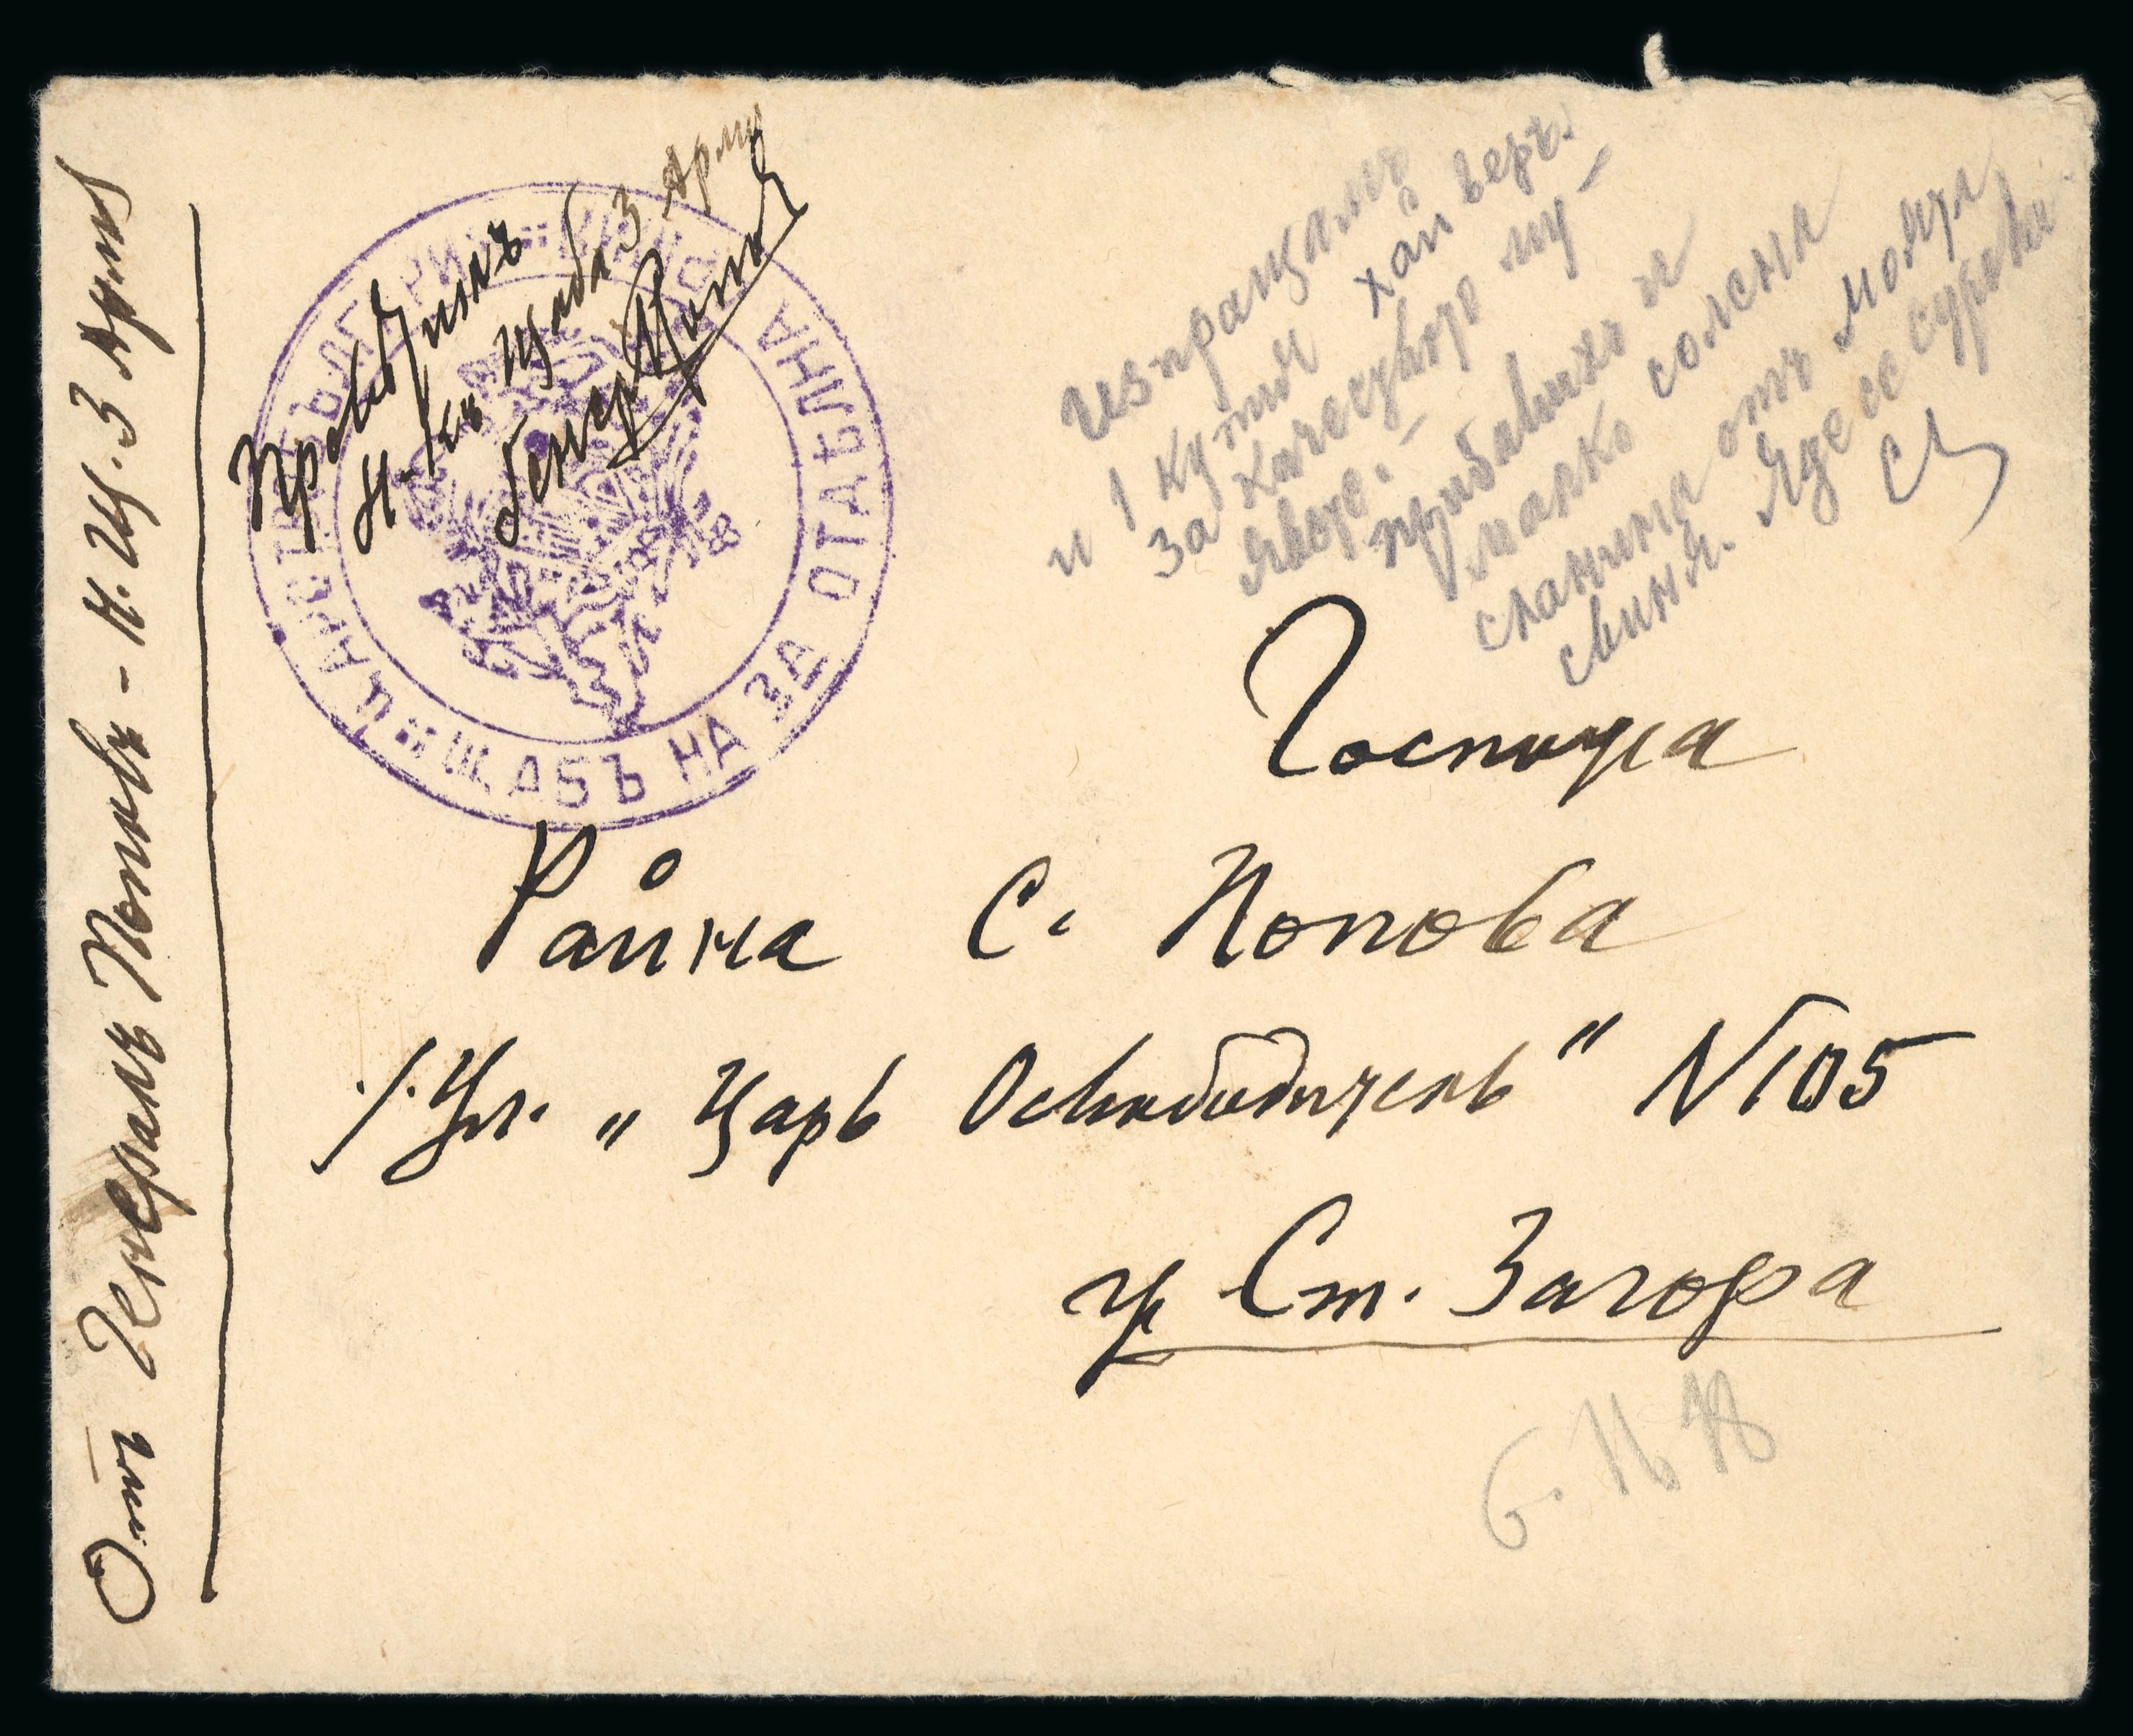 Отъ Генералъ Поповъ - Н. Щ. 3 Армия
Провѣрилъ
Н-къ Щаба 3 Армия
Генер.
ЦАРСТВО БЪЛГАРИЯ ЩАБЪ НА 3А ОТДѢЛНА
изпращамъ
и 1 кутия хайверъ.
За
прибавихъ и
малко солена
сланина отъ моята
свиня. Яде се сурова.
Госпожа
Райна С. Попова
Ул. „Царь Освободитель" N 105
гр. Ст. Загора
6. II 18